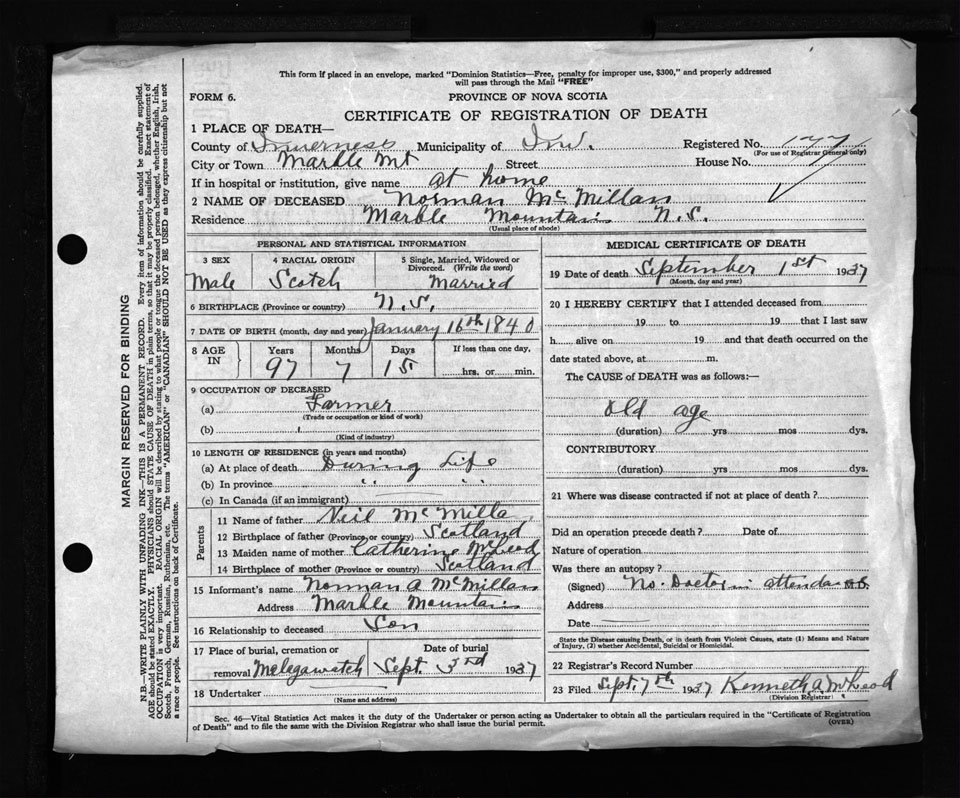 This form if placed in an envelope, marked "Dominion Statistics—Free, penalty for improper use, $300," and properly addressed
will pass through the Mail "FREE"
FORM 6.
PROVINCE OF NOVA SCOTIA
CERTIFICATE OF REGISTRATION OF DEATH
1 PLACE OF DEATH—
County of Inverness Municipality of Inv. Registered No. 177
(For use of Registrar General only)
City or Town Marble Mt Street House No.
If in hospital or institution, give name at home
2 NAME OF DECEASED Norman McMillan
Residence Marble Mountain N.S.
(Usual place of abode)
PERSONAL AND STATISTICAL INFORMATION
3 SEX 4 RACIAL ORIGIN 5 Single, Married, Widowed or
Divorced. (Write the word)
Male Scotch Married
6 BIRTHPLACE (Province or country) N.S.
7 DATE OF BIRTH (month, day and year) January 16th 1840
8 AGE IN Years Months Days If less than one day,
97 7 15 hrs. or min.
9 OCCUPATION OF DECEASED
(a) Farmer
(Trade or occupation or kind of work)
(b)
(Kind of industry)
10 LENGTH OF RESIDENCE (in years and months)
(a) At place of death During Life
(b) In province " "
(c) In Canada (if an immigrant)
Parents
11 Name of father Neil McMilla
12 Birthplace of father (Province or country) Scotland
13 Maiden name of mother Catherine McLeod
14 Birthplace of mother (Province or country) Scotland
15 Informant's name Norman A McMillan
Address Marble Mountain
16 Relationship to deceased Son
17 Place of burial, cremation or Date of burial
removal Malagawatch Sept. 3rd 1937
18 Undertaker
(Name and address)
MEDICAL CERTIFICATE OF DEATH
19 Date of death September 1st 1937
(Month, day and year)
20 I HEREBY CERTIFY that I attended deceased from
19 to 19 that I last saw
h alive on 19 and that death occurred on the
date stated above, at m.
The CAUSE of DEATH was as follows:—
Old age
(duration) yrs mos dys.
CONTRIBUTORY
(duration) yrs mos dys.
21 Where was disease contracted if not at place of death?
Did an operation precede death? Date of
Nature of operation
Was there an autopsy?
(Signed) No. Doctor in attendan M.D.
Address
Date
State the Disease causing Death, or in death from Violent Causes, state (1) Means and Nature
of Injury, (2) whether Accidental, Suicidal or Homicidal.
22 Registrar's Record Number
23 Filed Sept. 7th 1937 Kenneth A. McLeod
(Division Registrar)
Sec. 46—Vital Statistics Act makes it the duty of the Undertaker or person acting as Undertaker to obtain all the particulars required in the "Certificate of Registration
of Death" and to file the same with the Division Registrar who shall issue the burial permit.
(OVER)
MARGIN RESERVED FOR BINDING
N.B.—WRITE PLAINLY WITH UNFADING INK—THIS IS A PERMANENT RECORD. Every item of information should be carefully supplied.
AGE should be stated EXACTLY. PHYSICIANS should STATE CAUSE OF DEATH in plain terms, so that it may be properly classified. Exact statement of
OCCUPATION is very important. RACIAL ORIGIN will be described by stating to what people or tongue the deceased person belonged, whether English, Irish,
Scotch, French, German, Russian, Ruthenian, etc. The terms "AMERICAN" or "CANADIAN" SHOULD NOT BE USED as they express citizenship but not
a race or people. See instructions on back of Certificate.